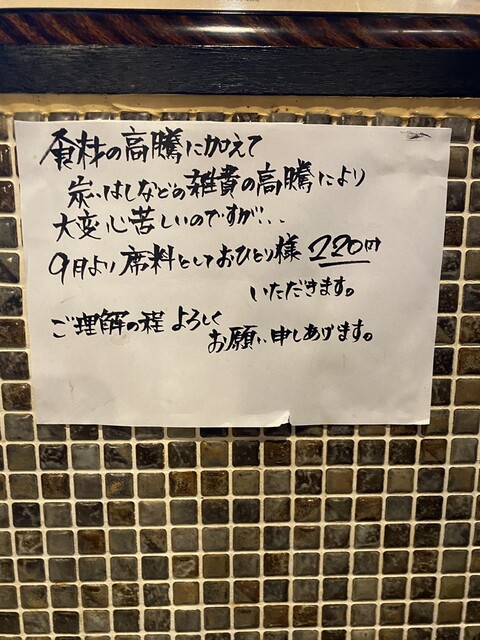 食材の高騰に加えて
炭、はしなどの雑費の高騰により
大変心苦しいのですが...
9月より席料としておひとり様220円
いただきます。
ご理解の程よろしく
お願い申しあげます。